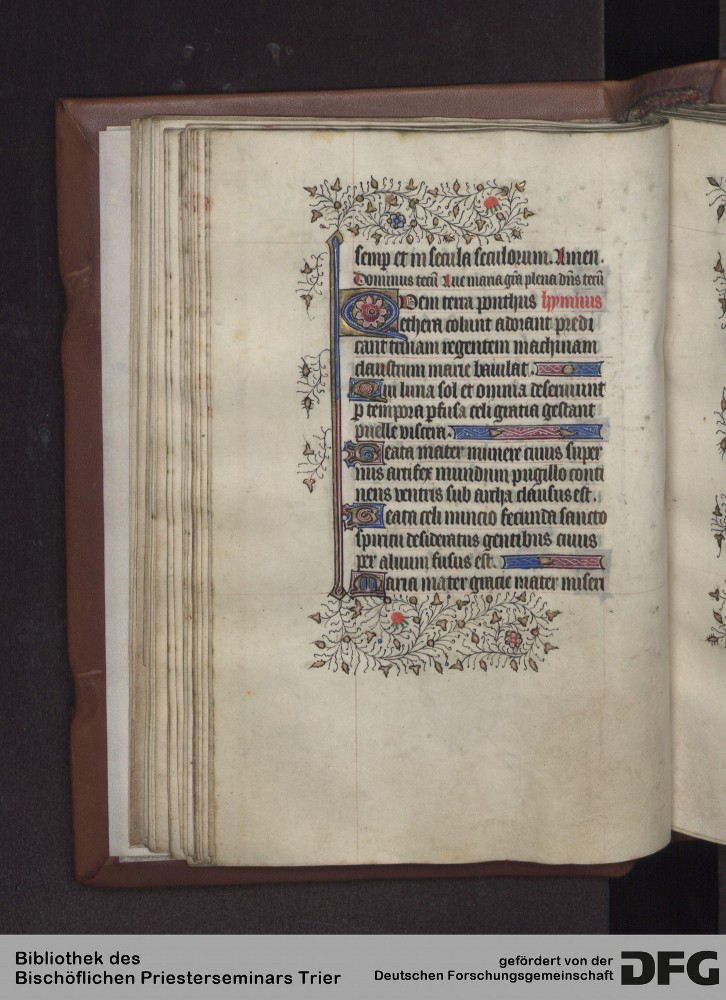 semp et in secula seculorum. Amen.
Dominus tecū Aue maria gr̄a plena dn̄s tecū
Quem terra ponthus hymnus
ethera colunt adorant predi
cant trinam regentem machinam
claustrum marie baiulat.
Cui luna sol et omnia deseruiunt
p tempora pfusa celi gratia gestant
puelle viscera.
Beata mater munere cuius super
nus artifex mundum pugillo conti
nens ventris sub archa clausus est.
Beata celi nuncio fecunda sancto
spiritu desideratus gentibus cuius
per aluum fusus est.
Maria mater gracie mater miseri
Bibliothek des
Bischöflichen Priesterseminars Trier
gefördert von der
Deutschen Forschungsgemeinschaft
DFG